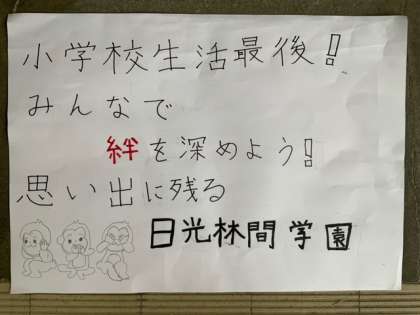 小学校生活最後!
みんなで
絆を深めよう!
思い出に残る
日光林間学園